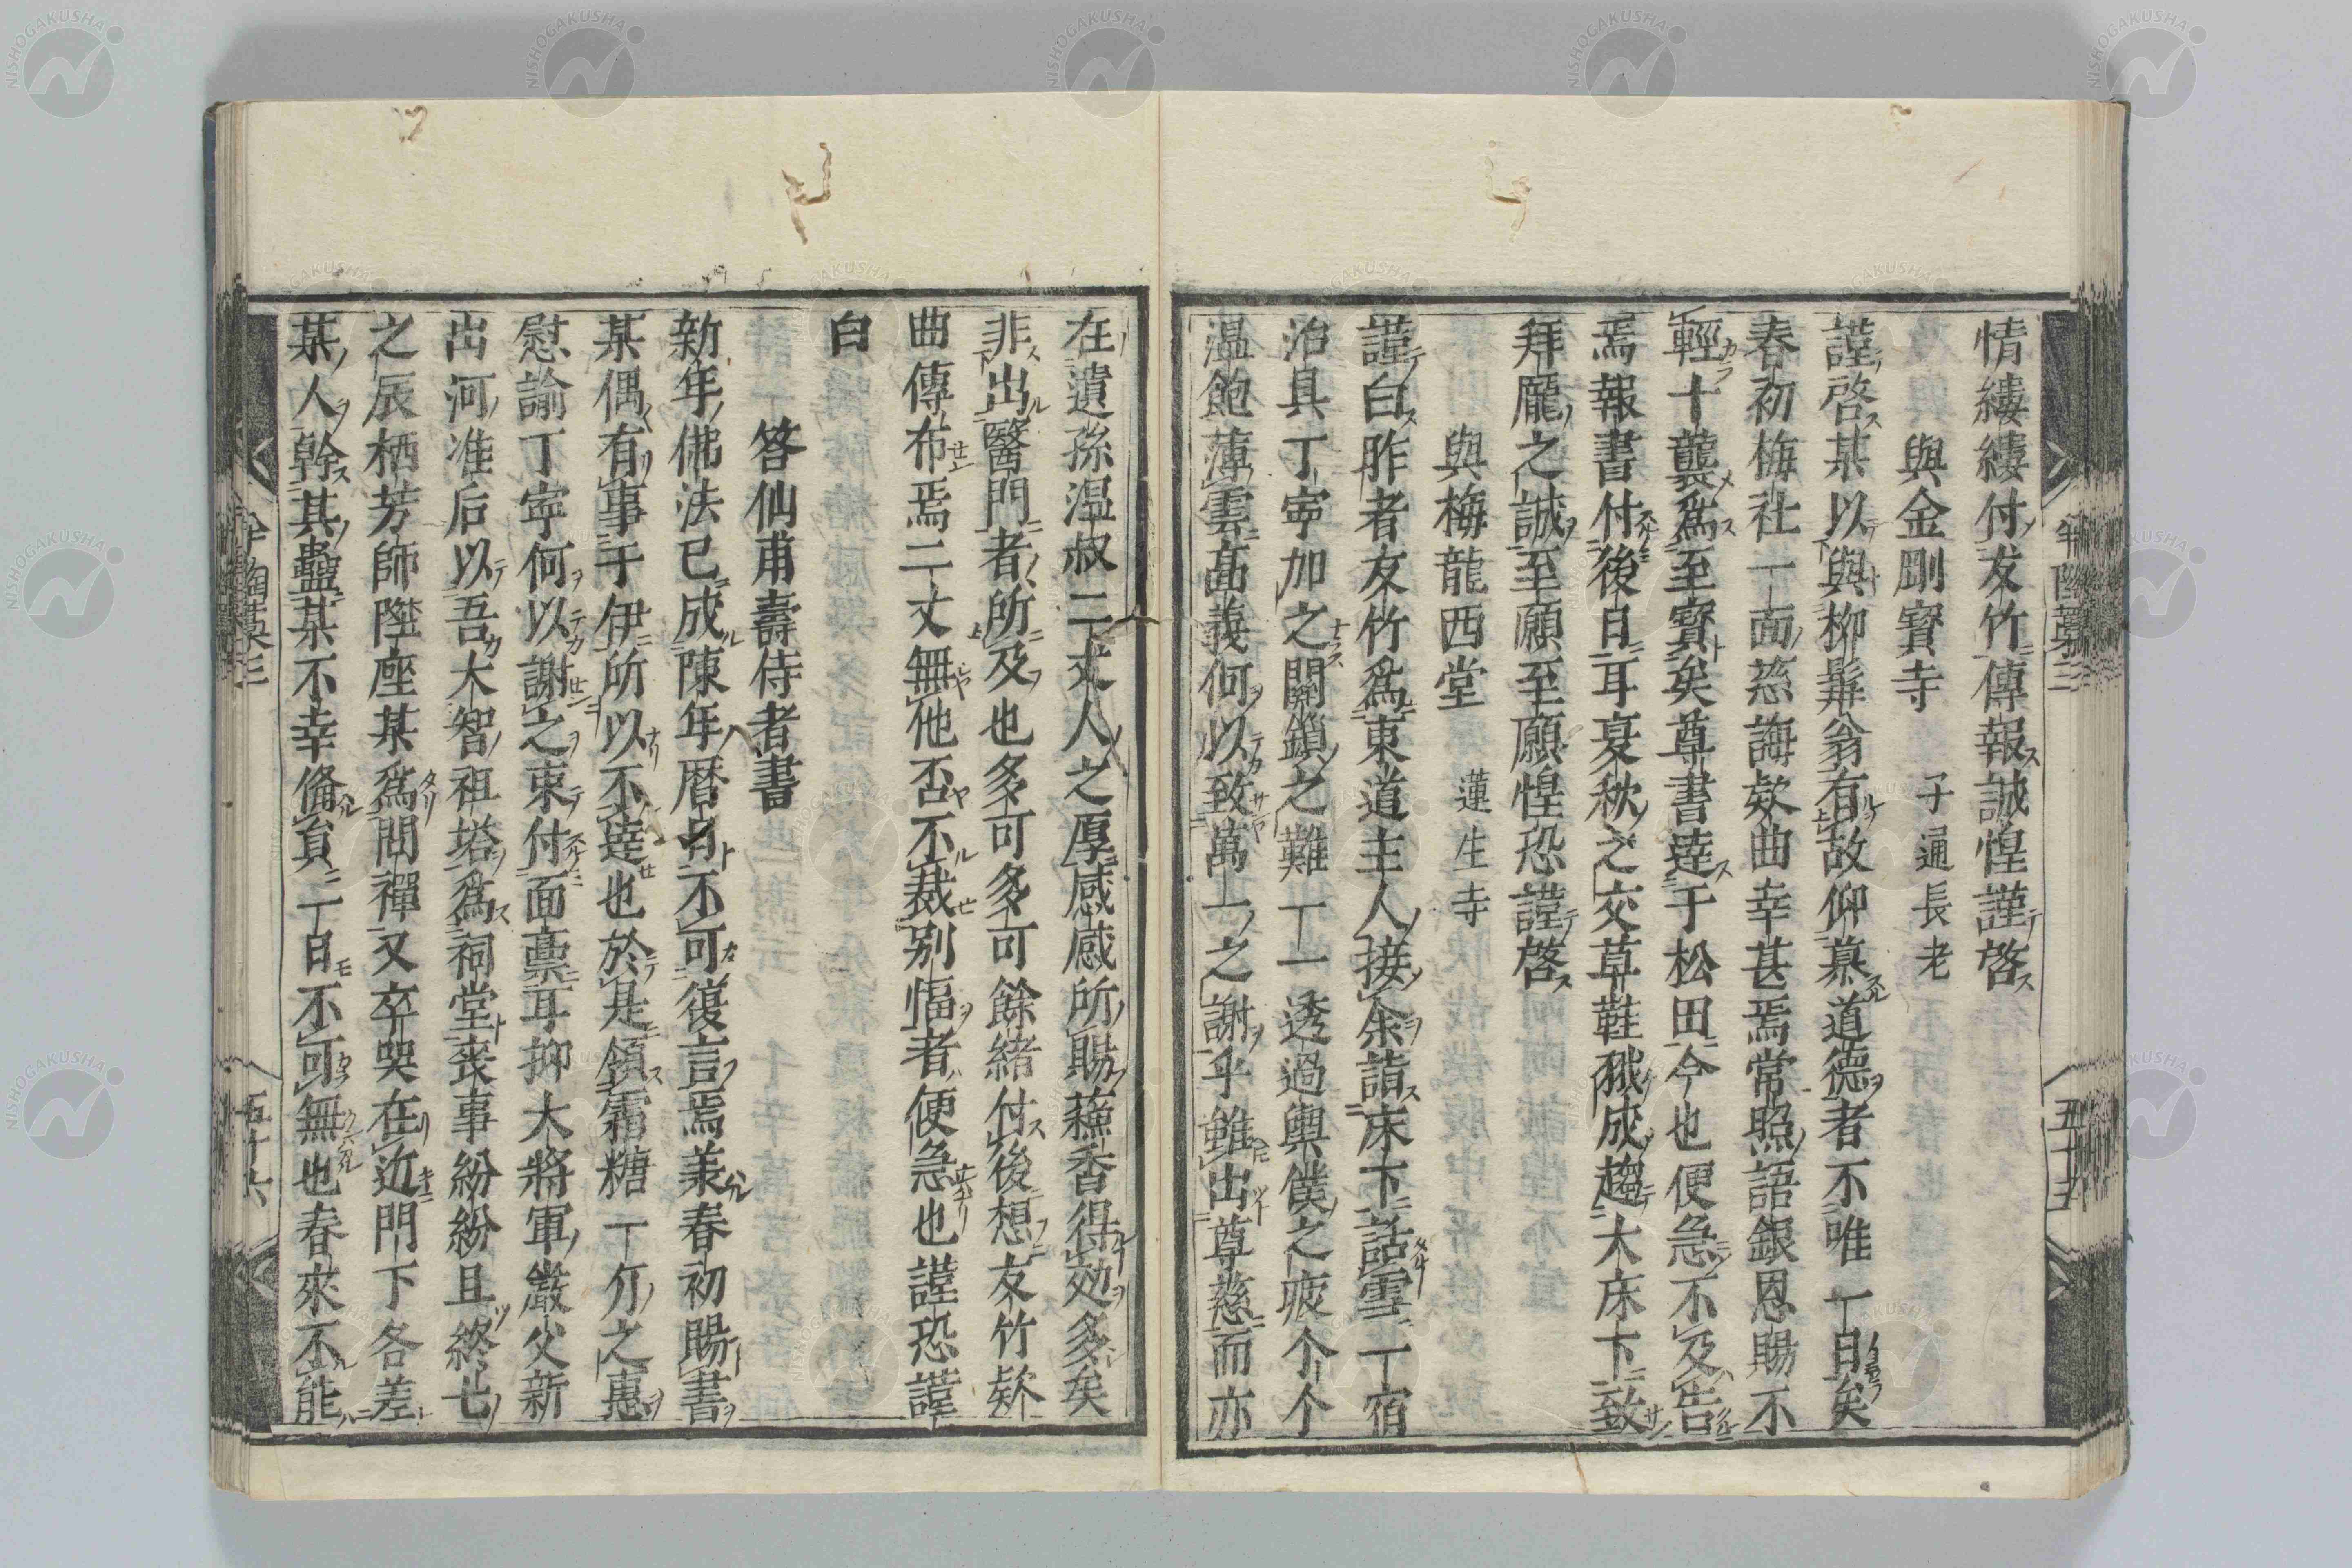 情縷縷付友竹傳報誠惶謹啓
與金剛寳寺 子通長老
謹啓某以與柳鬅翁有故仰慕道德者不唯一日矣
春初梅社一面慈誨欵曲幸甚焉常照語銀恩賜不
輕十襲爲至寳矣尊書達于松田今也便急不及告
焉報書付後日耳夏秋之交草鞋 成趨大床下致
拜龐之誠至願至願惶恐謹啓
與梅龍西堂 蓮生寺
謹白昨者友竹爲東道主人接余請床下話雪一宿
治具丁寧加之關鎖之難一一透過輿僕之疲个个
温飽薄雲高義何以致萬一之謝乎雖出尊慈而亦
在遺孫温叔二丈人之厚感感所賜蘓香得効多矣
非出醫門者所及也多可多可餘緒付後想友竹欵
曲傳布焉二丈無他否不裁別愊者便急也謹恐謹
白
答仙甫壽侍者書
新年佛法已成陳年暦自不可復言焉羕春初賜書
某偶有事于伊所以不達也於是領霜糖一斤之惠
慰諭丁寧何以謝之束付面禀耳抑大將軍嚴父新
出河准后以吾大智祖塔爲祠堂喪事紛紛且終七
之辰栖芳師陞座某爲問禪又卒哭在近門下各差
某人幹其蠱某不幸備負一日不可無也春來不能
五十五
五十六
NISHOGAKUSHA